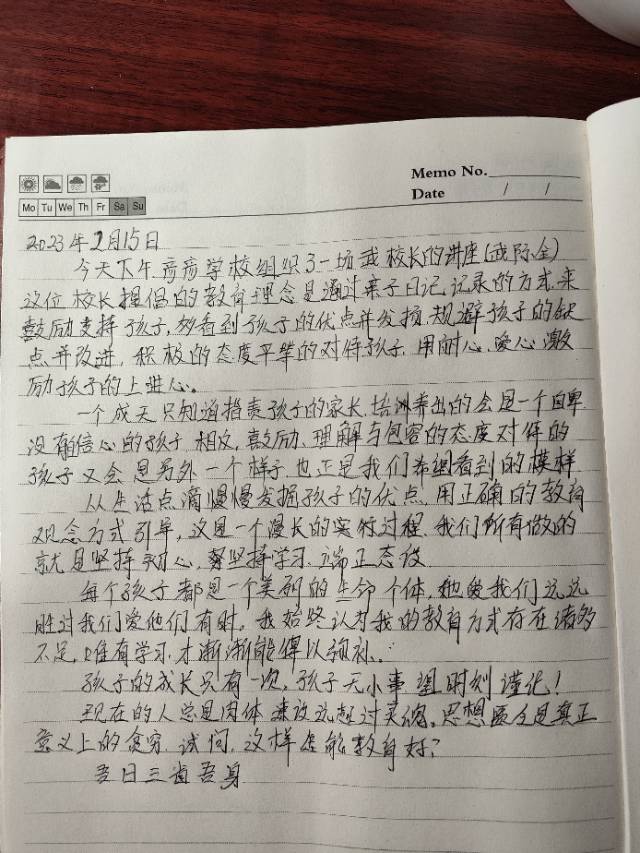 Memo No.
Date / /
Mo Tu We Th Fr Sa Su
2023年2月15日
今天下午 学校组织了一场武校长的讲座(武际金)
这位校长提倡的教育理念是通过亲子日记记录的方式来
鼓励支持孩子,能看到孩子的优点并发掘,规避孩子的缺
点并改进,积极的态度平等的对待孩子,用耐心、爱心激
励孩子的上进心。
一个成天只知道指责孩子的家长,培训养出的会是一个自卑
没有信心的孩子,相反,鼓励、理解与包容的态度对待的
孩子又会是另外一个样子,也正是我们希望看到的模样
从生活点滴慢慢发掘孩子的优点,用正确的教育
观念方式引导,这是一个漫长的实行过程,我们所有做的
就是坚持初心,坚持学习、端正态度
每个孩子都是一个美丽的生命个体,她爱我们远远
胜过我们爱他们有时,我始终认为我的教育方式存在诸多
不足,唯有学习,才渐渐能得以弥补。
孩子的成长只有一次,孩子无小事,望时刻谨记!
现在的人总是肉体 远超过灵魂,思想匮乏是真正
意义上的贫穷,试问,这样怎能教育好?
吾日三省吾身